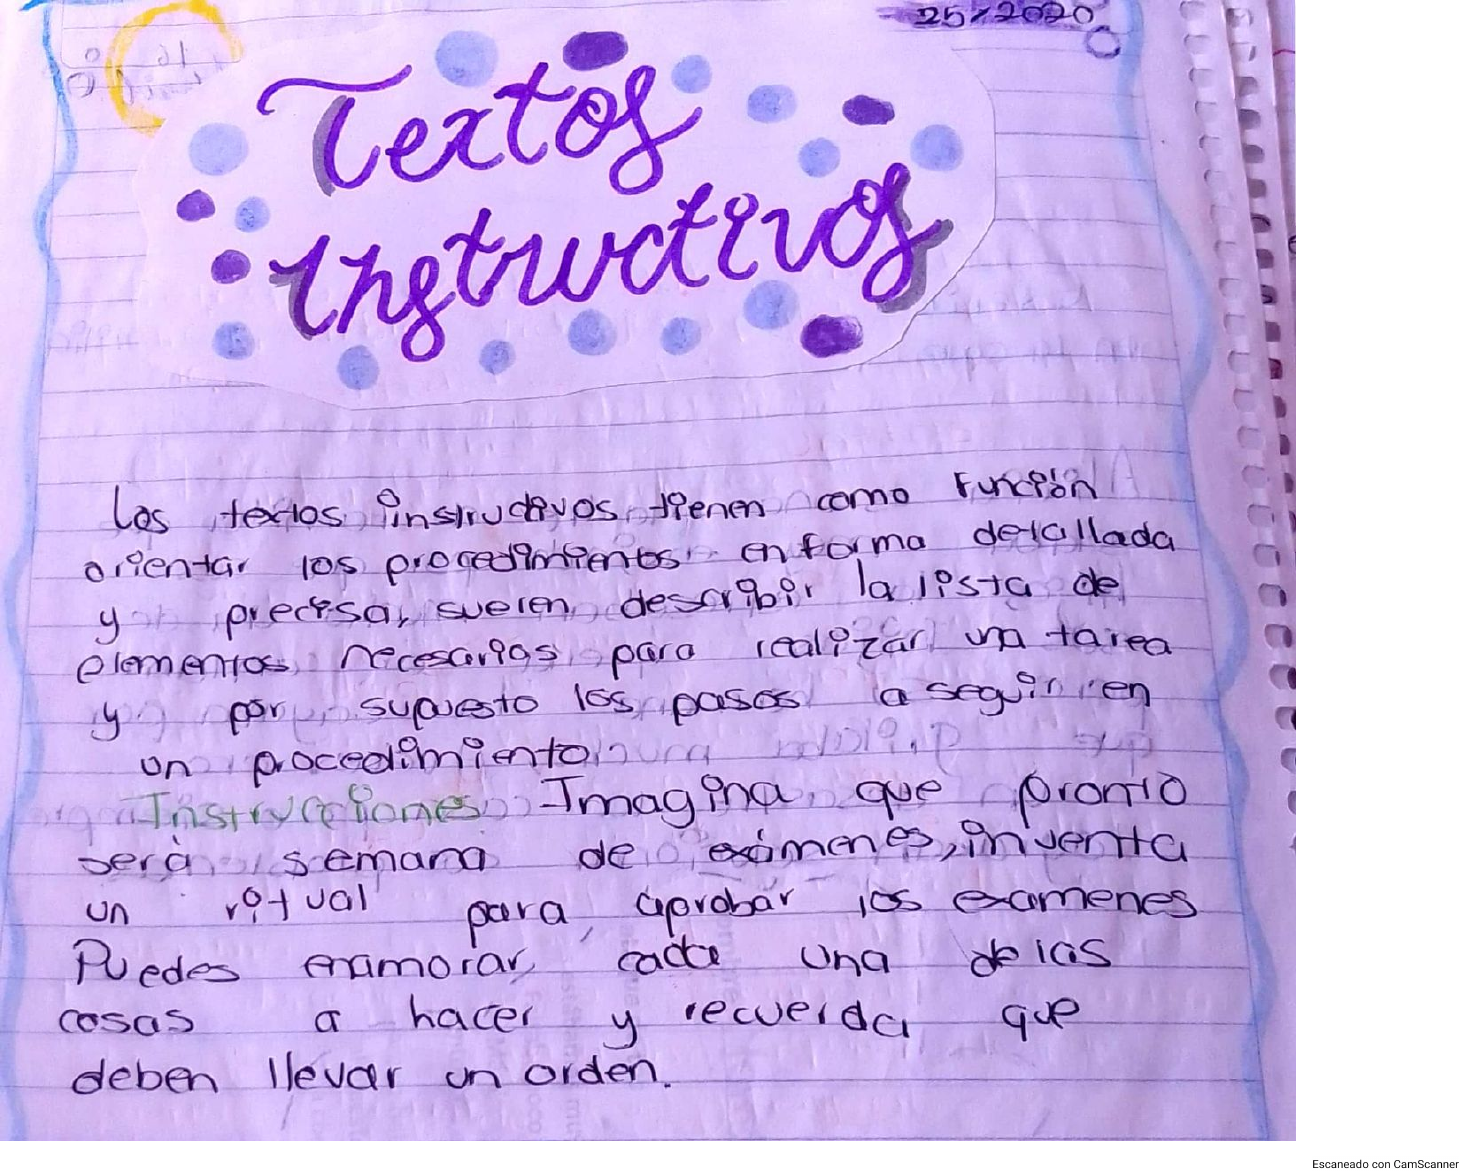 25/2020
Textos
Instructivos
Los textos instructivos tienen como función
orientar los procedimientos en forma detallada
y precisa, suelen describir la lista de
elementos necesarios para realizar una tarea
y por supuesto los pasos a seguir en
un procedimiento
Instrucciones Imagina que pronto
será semana de exámenes, inventa
un ritual para aprobar los examenes
Puedes enamorar cada una de las
cosas a hacer y recuerda que
deben llevar un orden.
Escaneado con CamScanner